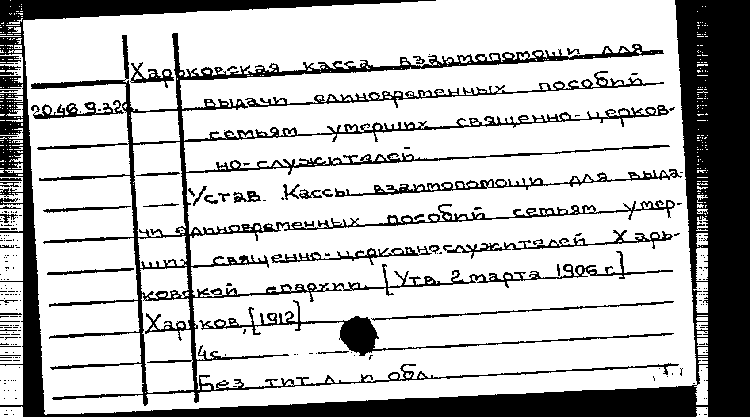 Харьковская касса взаимопомощи для
20.46.9.326
выдачи единовременных пособий
семьям умерших священно-церков-
но-служителей
Устав Кассы взаимопомощи для выда-
чи единовременных пособий семьям умер-
ших священно-церковнослужителей Харь-
ковской епархии. [Утв. 2 марта 1906 г.]
Харьков, [1912]
4с.
Без тит. л. и обл.